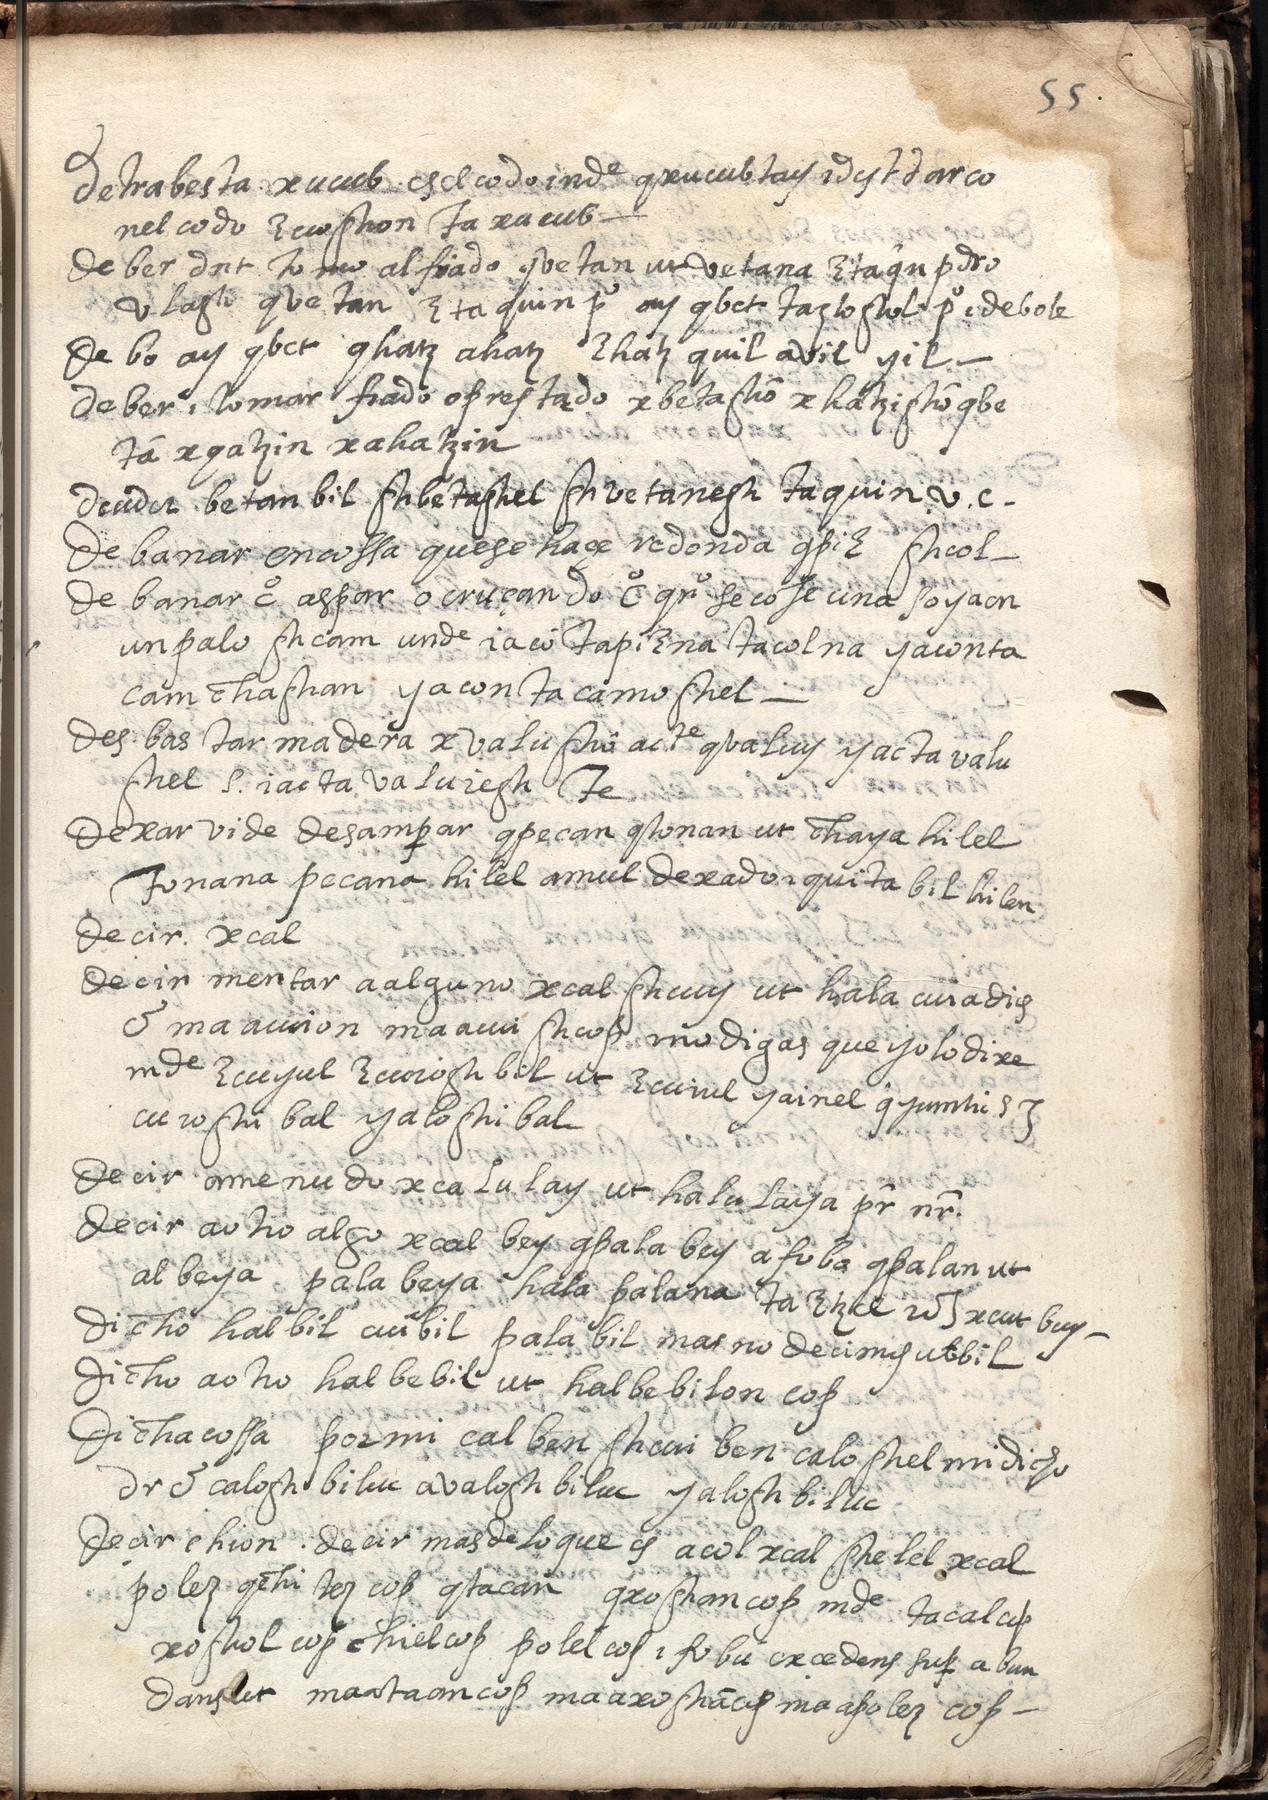 55.
detrabesta xucub es el codo inde qxucub tay i dyt d arco
nel codo Ɛcoghon ta xacub —
deber dnt tomo al fiado qvetan ut vetana Ɛtaqn pdro
vlagh qvetan Ɛtaquin po ay qbet tazloghol po i debole
debo ay qbet qhatz ahatz Ɛhatz quil avil yil —
deber i tomar fiado oprestado xbetaghō xhatzighō qbe
tā xqatzin xahatzin
deuda betanbil ghbetaghel ghvetanegh taquin v.c.
debanar en cossa que se haçe redonda qpiƐ ghcol —
debanar co aspar o cruçando co qno secosse una soya en
un palo ghcam unde iaco tapiƐna tacolna yaconta
cam chaghan yaconta camoghel —
desbastar madera xvalughō acte qvaluy yacta valu
ghel s. iacta valuiegh te
dexar vide desampar qpecan qtonan ut chaya hilel
tonana pecana hilel amul dexado i quitabil hilen
decir. xcal
decir mentar a alguno xcal ghcuy ut hala cui a dios
& maauion maaui ghcop no digas que yo lo dixe
inde Ɛcuyul Ɛcuioghbil ut Ɛcuiul yainel
cuioghibal yaloghibal
decir amenudo xcalulay ut halulaya pr nr.
decir aotro algo xcal bey qpala bey a fuba qpalan ut
albeya palabeya hala palana xcut bey —
dicho halbil cuibil palabil mas no decimos utbil
dicho aotro halbebil ut halbebilon cop
dicha cossa por mi calben ghcuiben caloghel mi dicho
dr & caloghbiluc avaloghbiluc yaloghbiluc
decir chion. decir mas de lo que es acol xcal ghelel xcal
polez qchi tez cop qtacan qxoghan cop inde tacal cop
xoghol cop chiel cop polel cop i fobu excedens sup abun
dans ut maataan cop maaxoghā cop maapolez cop —